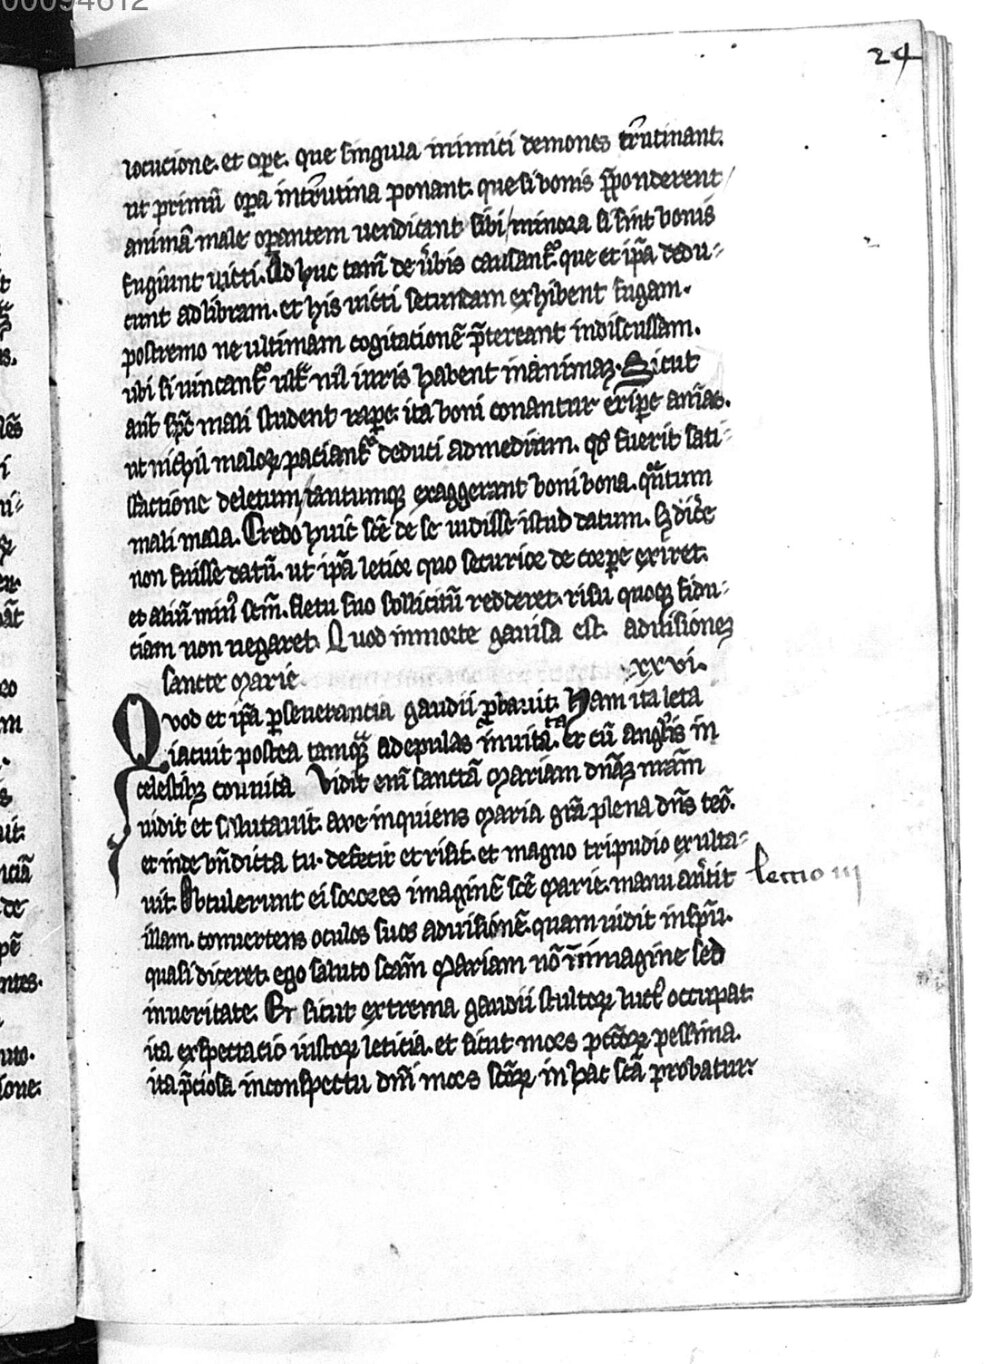 00094612
24
locucione. et ope. que singula inimici demones trutinant.
ut primũ opa in trutina ponant. que si bonis spponderent
animã male opantem vendicant sibi / minora si sint bonis
fugiunt victi. Ad huc tam̃ de ũbis causant᷑. que et ip̃a dedu-
cunt ad libram. et his victi secundam exhibent fugam.
postremo ne ultimam cogitationẽ p̃tereant indiscussam.
ubi si vincant᷑ ult᷑ nil iuris habent in animaʒ. Sicut
aut̃ sp̃c mali student rape. ita boni conantur eripe animas.
ut nichil maloꝝ paciant᷑ deduci ad medium. qd̾ fuerit sati-
sfactione deletum / tantumqʒ exaggerant boni bona. qñtum
mali mala. Credo huic sc̃e de se vidisse istud datum. Sʒ dic̾e
non fuisse datũ. ut ip̃a letior quo securior de corpe exiret.
et aliũ min᷒ sc̃m. fletu suo sollicitũ redderet. risu quoqʒ fidu-
ciam non negaret. Quod in morte gavisa est. ad visionez
sancte marie. .xxvi.
Quod et ip̃a pseverancia gaudii pbavit. Nam ita leta
iacuit postea tamqʒ̃ ad epulas invitata. et cũ angl̃is in
celestibʒ convivia Vidit enĩ sanctã Mariam dñaʒ nr̃am
vidit et salutavit. ave inquiens Maria gr̃a plena dñs tecũ.
et inde bñdicta tu. defecit et risit. et magno tripudio exulta-
vit. Obtulerunt ei sorores imaginẽ sc̃e Marie. manu am̃vit lectio iii
illam. convertens oculos suos ad visionẽ. quam vidit in sp̃u.
quasi diceret. ego saluto sc̃am Mariam nõ in imagine sed
in veritate. Et sicut extrema gaudii stultoꝝ luct᷒ occupat.
ita expectacio iustoꝝ leticia. et sicut mors pctõꝝ pessima.
ita p̃ciosa in conspectu dñi mors sc̃oꝝ in hac sc̃a probatur.